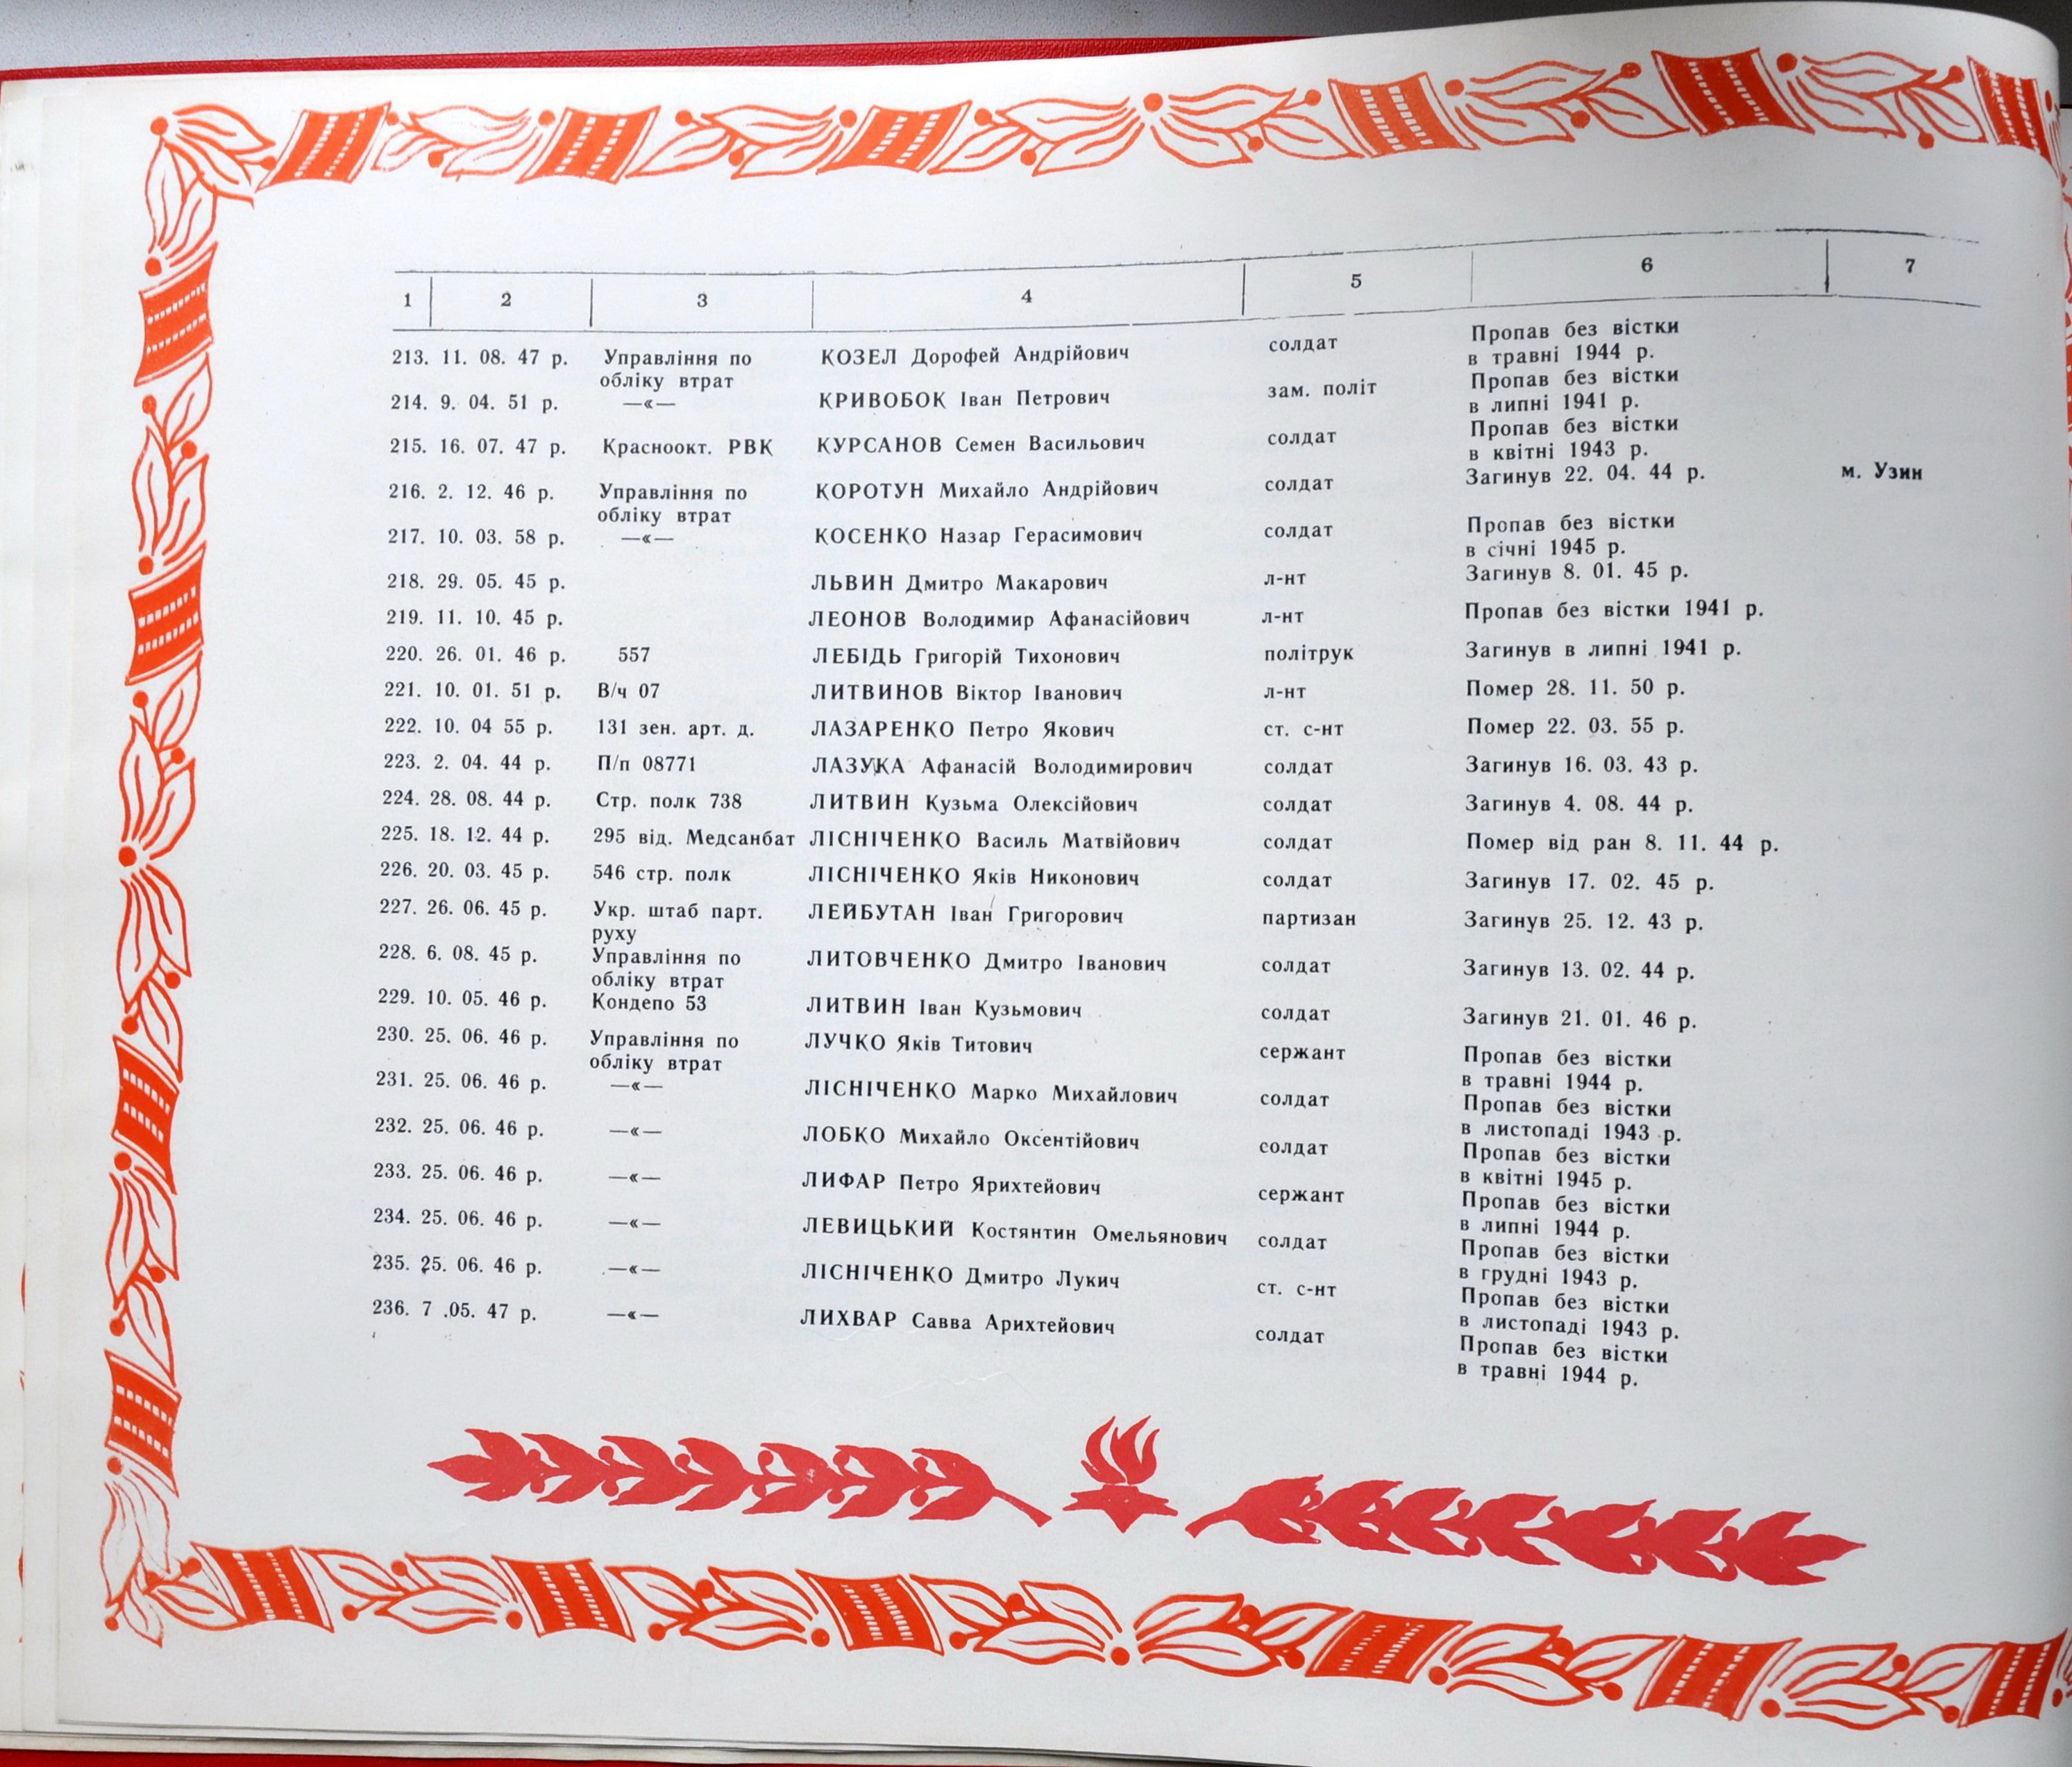 1 2 3 4 5 6 7
213. 11. 08. 47 р. Управління по КОЗЕЛ Дорофей Андрійович солдат Пропав без вістки
обліку втрат в травні 1944 р.
214. 9. 04. 51 р. —«— КРИВОБОК Іван Петрович зам. політ Пропав без вістки
в липні 1941 р.
215. 16. 07. 47 р. Красноокт. РВК КУРСАНОВ Семен Васильович солдат Пропав без вістки
в квітні 1943 р.
216. 2. 12. 46 р. Управління по КОРОТУН Михайло Андрійович солдат Загинув 22. 04. 44 р. м. Узин
обліку втрат
217. 10. 03. 58 р. —«— КОСЕНКО Назар Герасимович солдат Пропав без вістки
в січні 1945 р.
218. 29. 05. 45 р. ЛЬВИН Дмитро Макарович л-нт Загинув 8. 01. 45 р.
219. 11. 10. 45 р. ЛЕОНОВ Володимир Афанасійович л-нт Пропав без вістки 1941 р.
220. 26. 01. 46 р. 557 ЛЕБІДЬ Григорій Тихонович політрук Загинув в липні 1941 р.
221. 10. 01. 51 р. В/ч 07 ЛИТВИНОВ Віктор Іванович л-нт Помер 28. 11. 50 р.
222. 10. 04 55 р. 131 зен. арт. д. ЛАЗАРЕНКО Петро Якович ст. с-нт Помер 22. 03. 55 р.
223. 2. 04. 44 р. П/п 08771 ЛАЗУКА Афанасій Володимирович солдат Загинув 16. 03. 43 р.
224. 28. 08. 44 р. Стр. полк 738 ЛИТВИН Кузьма Олексійович солдат Загинув 4. 08. 44 р.
225. 18. 12. 44 р. 295 від. Медсанбат ЛІСНІЧЕНКО Василь Матвійович солдат Помер від ран 8. 11. 44 р.
226. 20. 03. 45 р. 546 стр. полк ЛІСНІЧЕНКО Яків Никонович солдат Загинув 17. 02. 45 р.
227. 26. 06. 45 р. Укр. штаб парт. ЛЕЙБУТАН Іван Григорович партизан Загинув 25. 12. 43 р.
руху
228. 6. 08. 45 р. Управління по ЛИТОВЧЕНКО Дмитро Іванович солдат Загинув 13. 02. 44 р.
обліку втрат
229. 10. 05. 46 р. Кондепо 53 ЛИТВИН Іван Кузьмович солдат Загинув 21. 01. 46 р.
230. 25. 06. 46 р. Управління по ЛУЧКО Яків Титович сержант Пропав без вістки
обліку втрат в травні 1944 р.
231. 25. 06. 46 р. —«— ЛІСНІЧЕНКО Марко Михайлович солдат Пропав без вістки
в листопаді 1943 р.
232. 25. 06. 46 р. —«— ЛОБКО Михайло Оксентійович солдат Пропав без вістки
в квітні 1945 р.
233. 25. 06. 46 р. —«— ЛИФАР Петро Ярихтейович сержант Пропав без вістки
в липні 1944 р.
234. 25. 06. 46 р. —«— ЛЕВИЦЬКИЙ Костянтин Омельянович солдат Пропав без вістки
в грудні 1943 р.
235. 25. 06. 46 р. —«— ЛІСНІЧЕНКО Дмитро Лукич ст. с-нт Пропав без вістки
в листопаді 1943 р.
236. 7 .05. 47 р. —«— ЛИХВАР Савва Арихтейович солдат Пропав без вістки
в травні 1944 р.